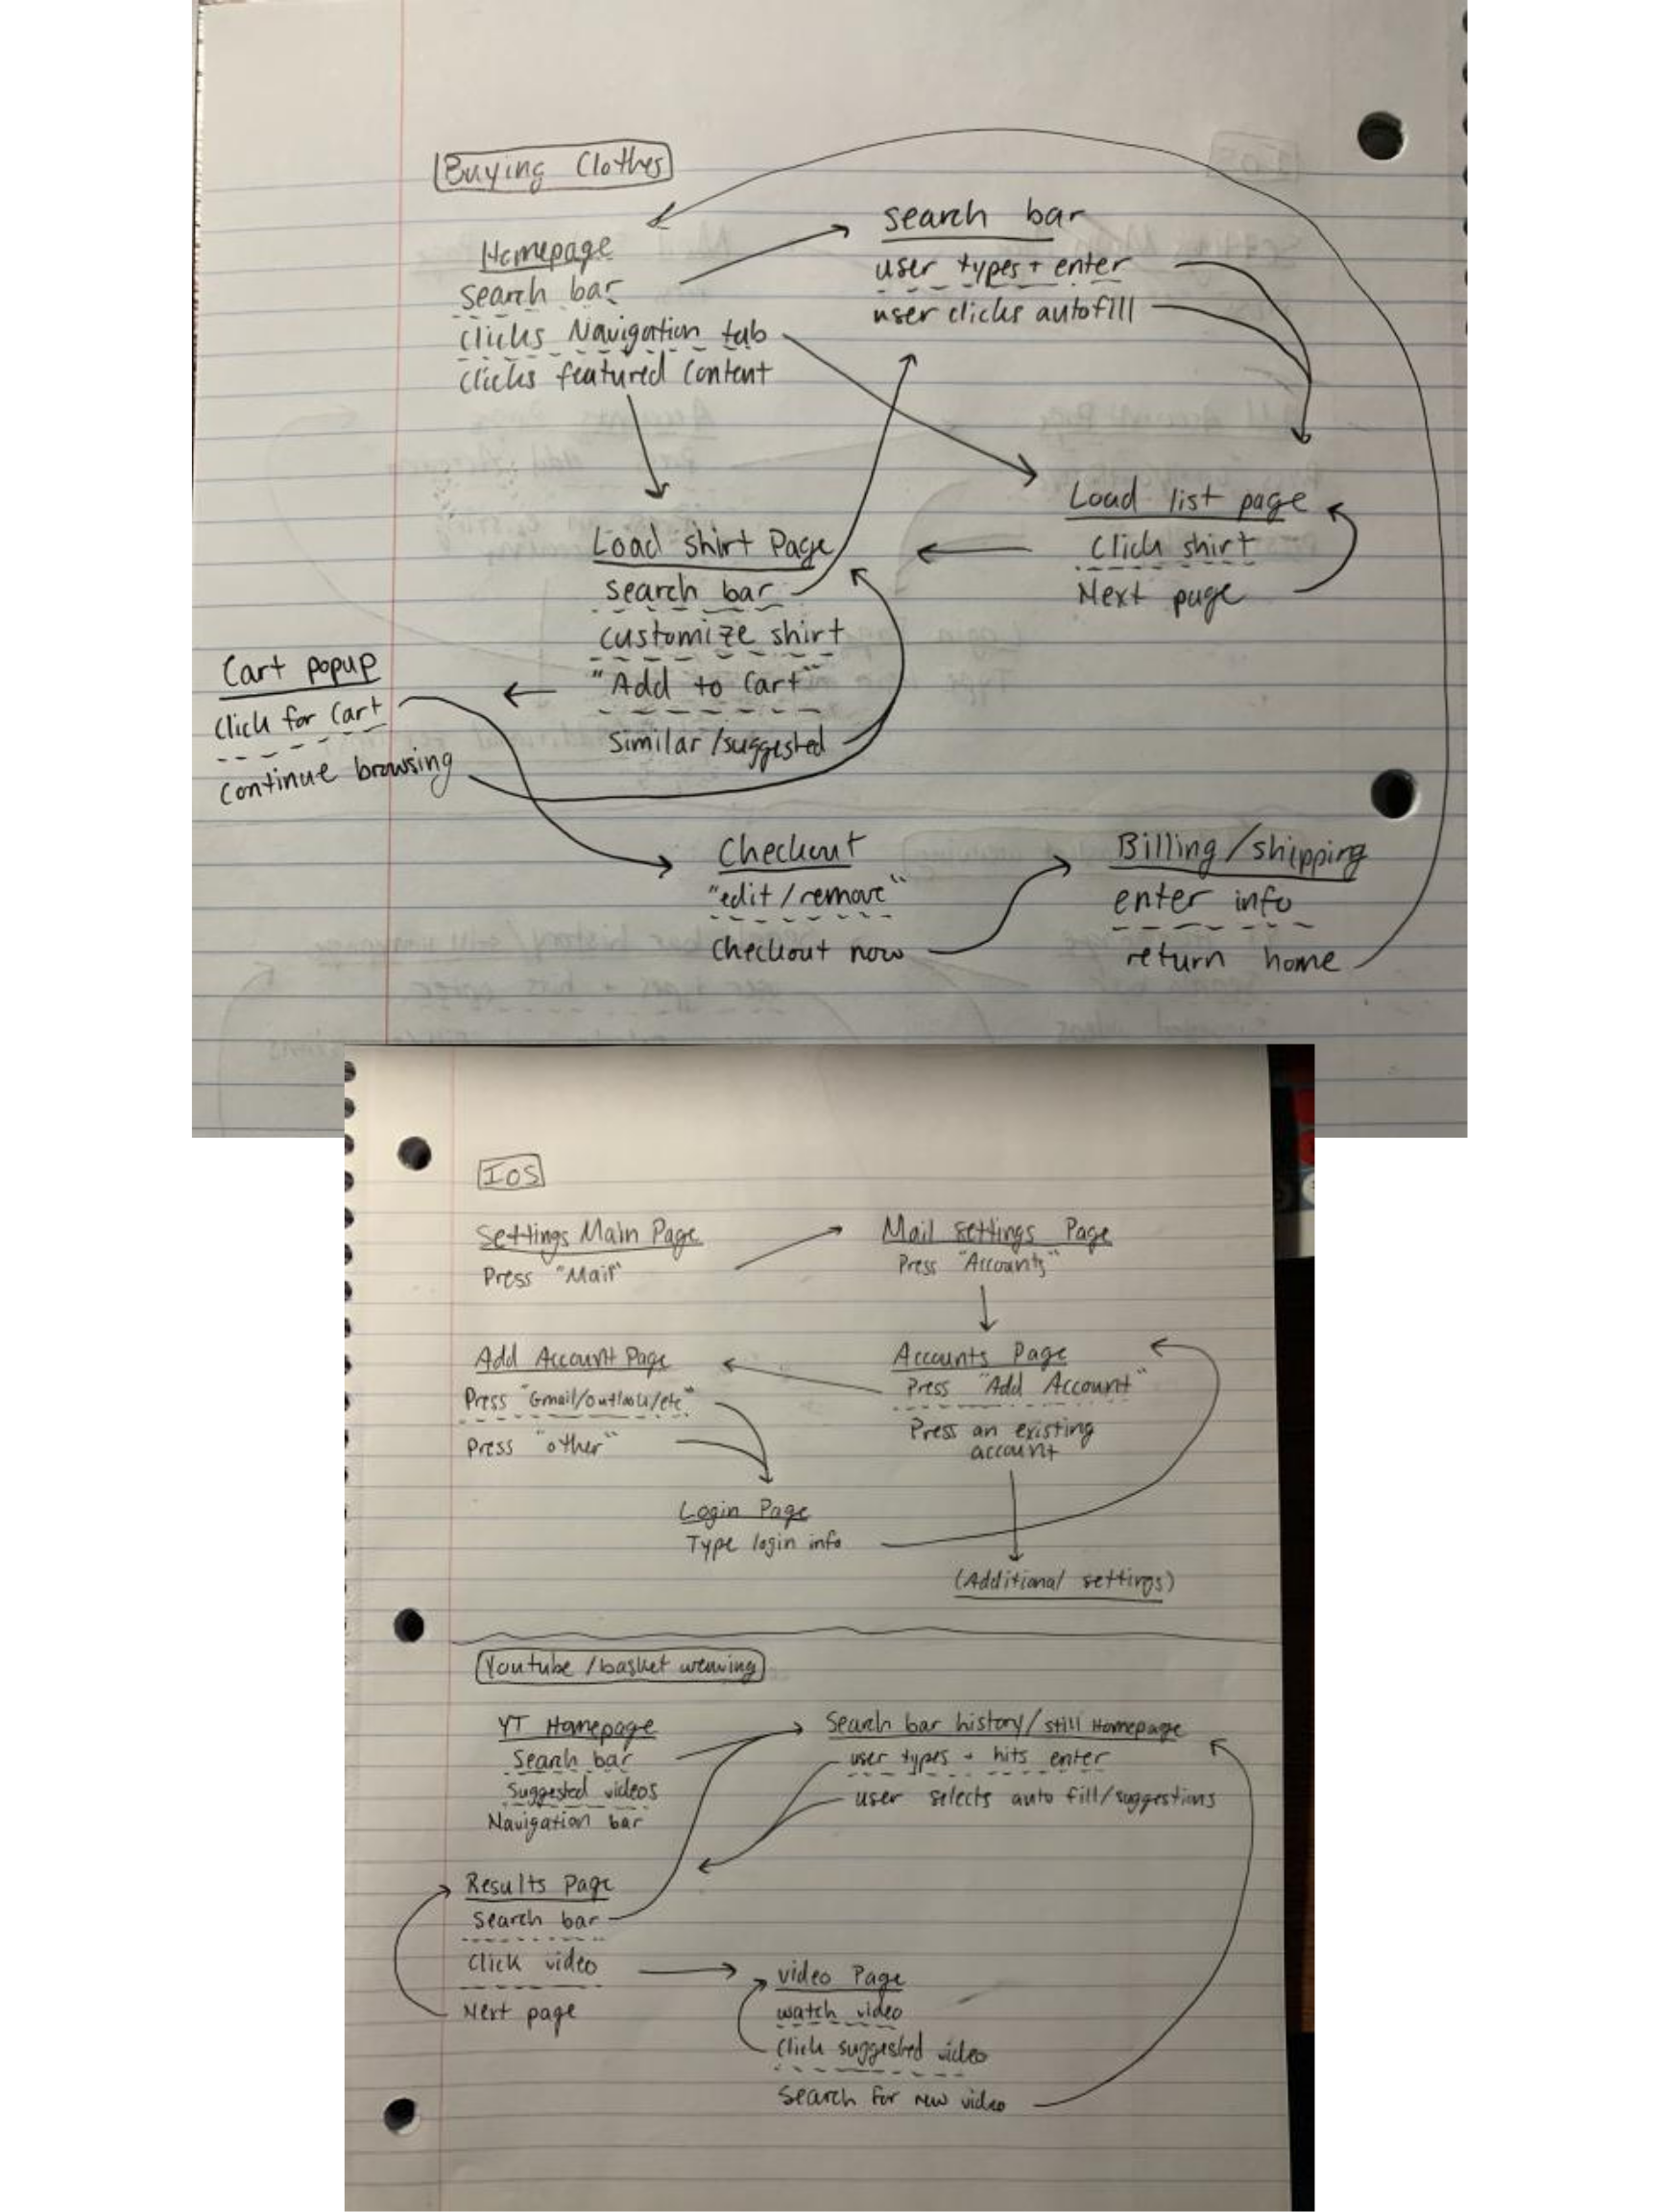 Buying Clothes
Homepage
search bar
clicks Navigation tab
clicks featured content
search bar
user types + enter
user clicks autofill
Load list page
Click shirt
Next page
Load shirt Page
search bar
customize shirt
"Add to Cart"
Similar/suggested
Cart popup
Click for Cart
continue browsing
Checkout
"edit/remove"
Checkout now
Billing/shipping
enter info
return home
IOS
Settings Main Page
Press "Mail"
Mail settings Page
Press "Accounts"
Accounts Page
Press "Add Account"
Press an existing
account
Add Account Page
Press "Gmail/outlook/etc"
Press "other"
Login Page
Type login info
(Additional settings)
Youtube/basket weaving
YT Homepage
Search bar
Suggested videos
Navigation bar
Search bar history/still Homepage
user types + hits enter
user selects auto fill/suggestions
Results Page
Search bar
Click video
Next page
video Page
watch video
Click suggested video
Search for new video